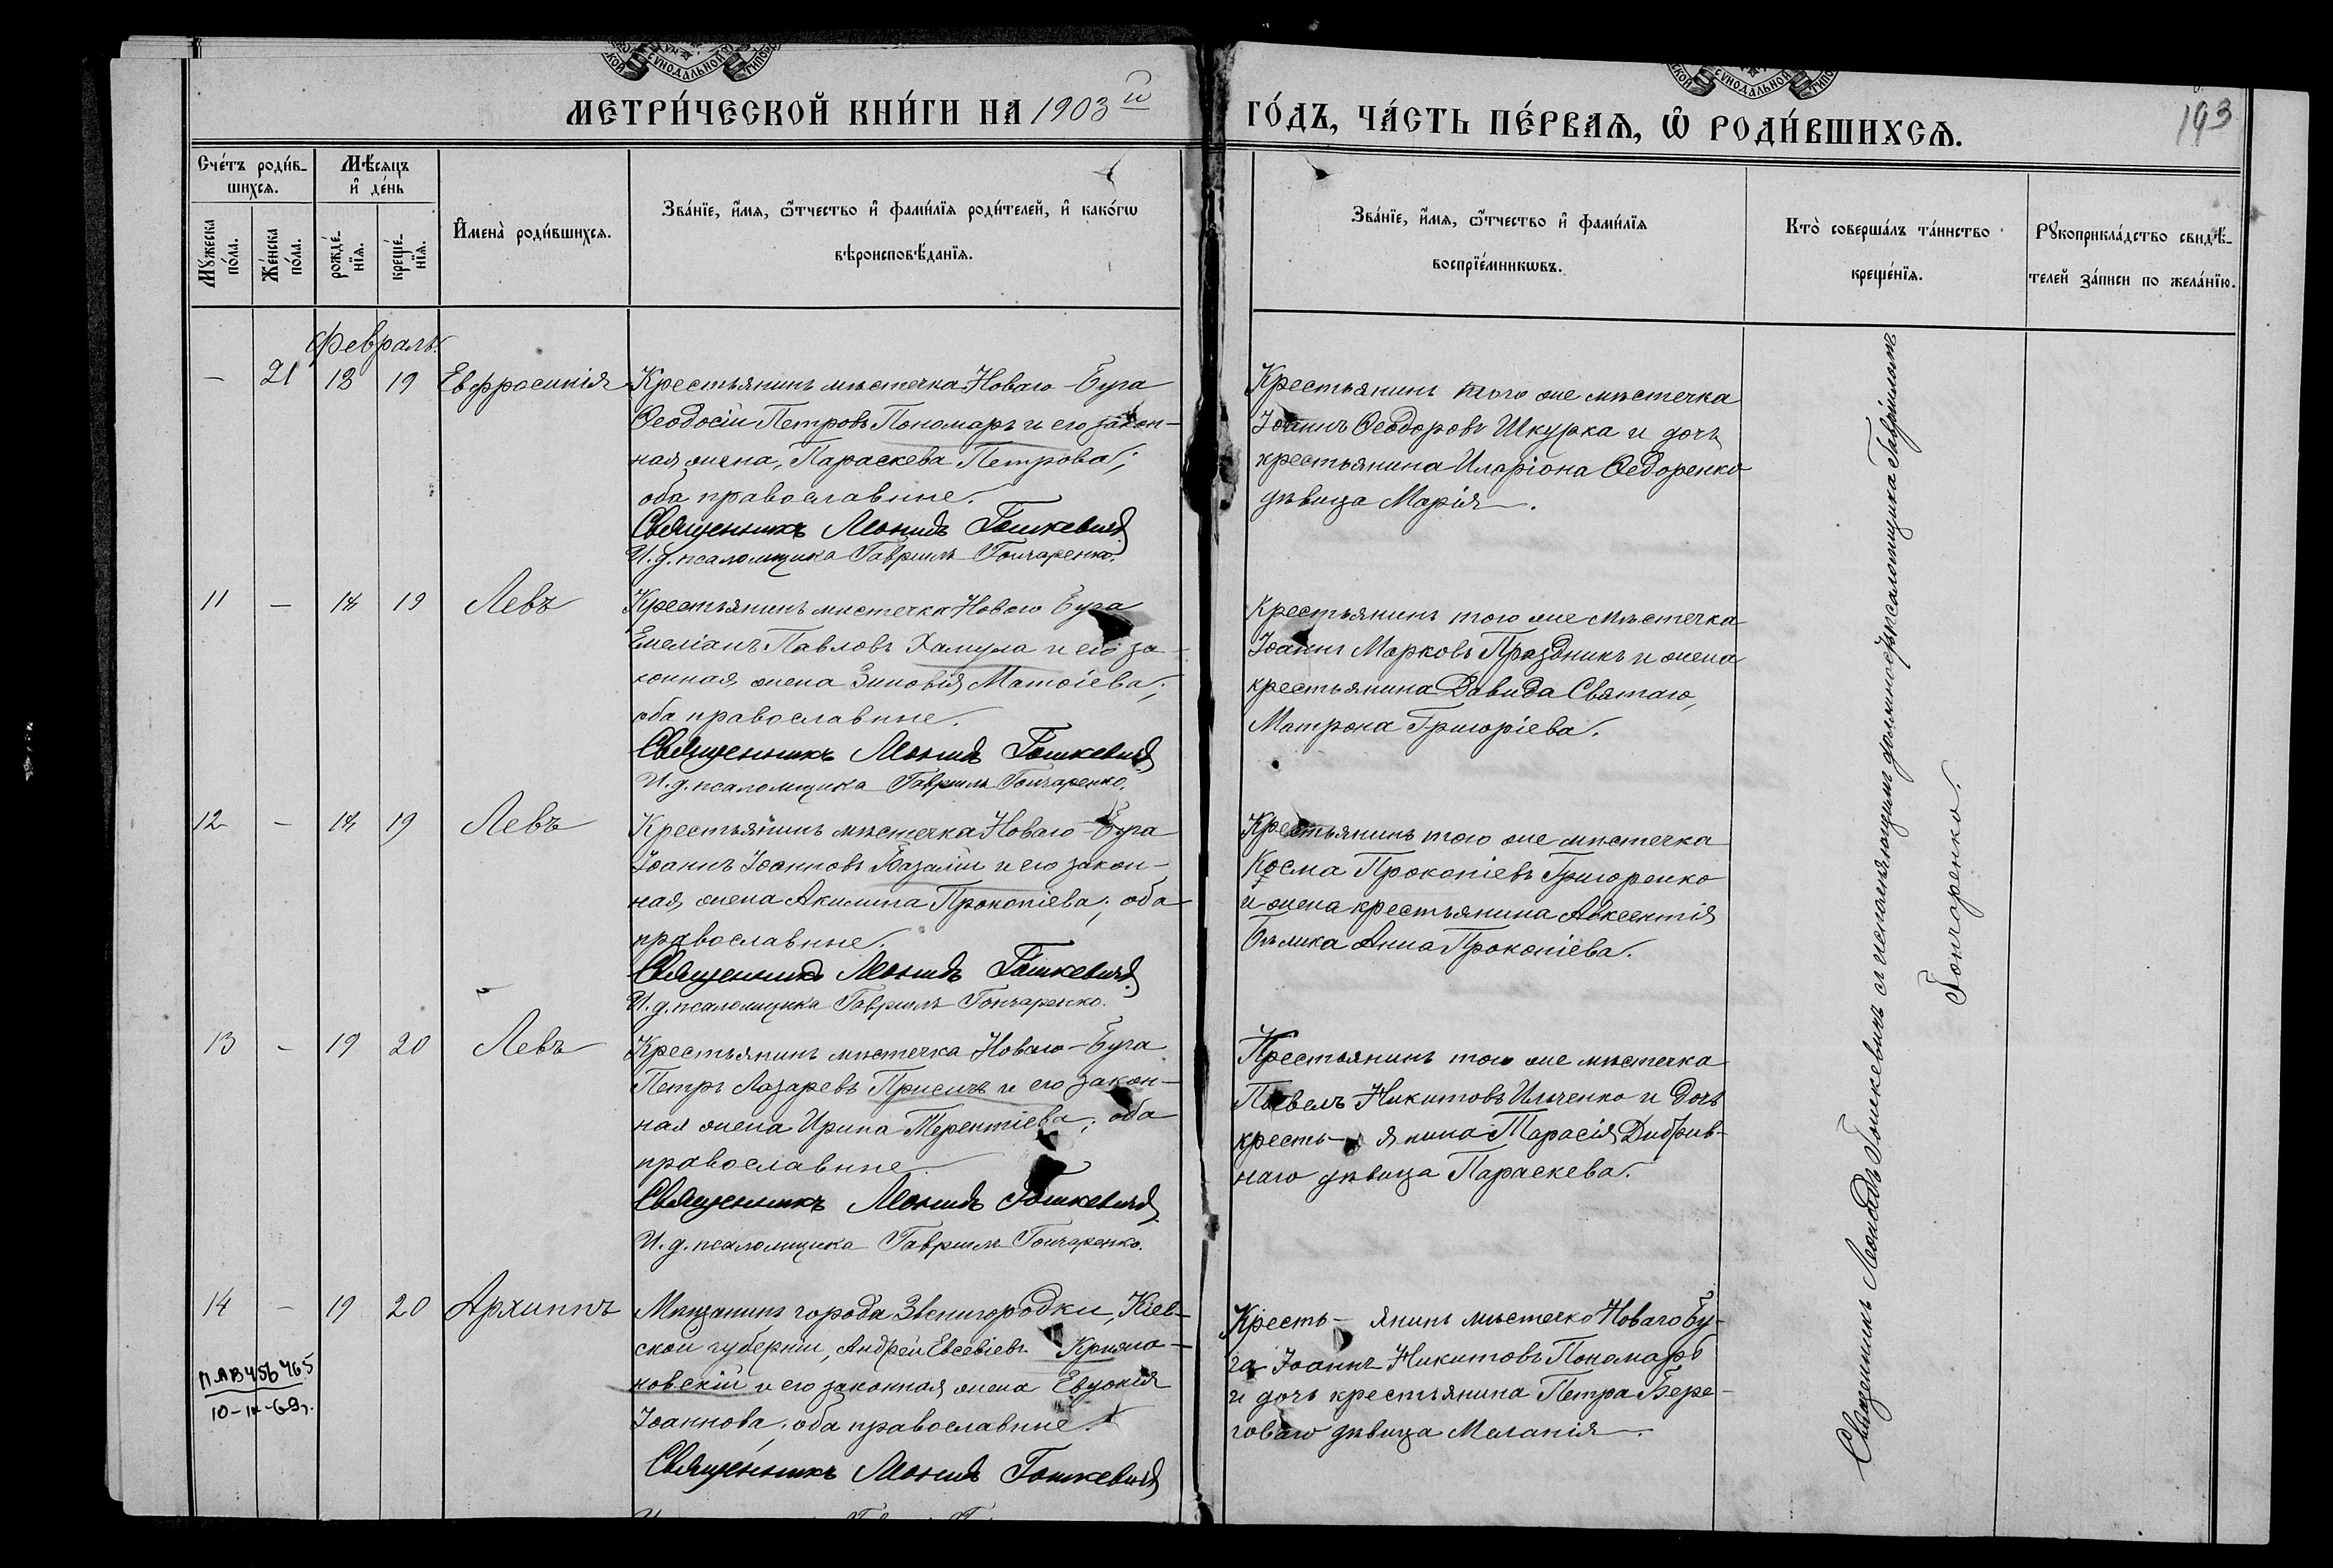 МЕТРИ́ЧЕСКОЙ КНИ́ГИ НА 1903 й
ГО́ДЪ, ЧА́СТЬ ПЕ́РВАѦ, Ѡ РОДИ́ВШИХСѦ.
193
Сче́тъ роди́в-
шихсѧ.
Мꙋ́жеска
по́ла.
Же́нска
по́ла.
Мѣ́сѧцъ
и҆ де́нь
рожде́-
нїѧ.
креще́-
нїѧ.
И҆мена̀ роди́вшихсѧ.
Зва́нїе, и҆́мѧ, ѻ҆́тчество и҆ фами́лїѧ роди́телей, и҆ како́гѡ
вѣроисповѣ́данїѧ.
Зва́нїе, и҆́мѧ, ѻ҆́тчество и҆ фами́лїѧ
воспрїе́мникѡвъ.
Кто̀ соверша́лъ та́инство
креще́нїѧ.
Рꙋкоприкла́дство свидѣ́-
телей за́писи по жела́нїю.
Февраль.
— 21 18 19 Евфросинія
Крестьянинъ мѣстечка Новаго-Буга
Ѳеодосій Петровъ Пономарь и его закон-
ная жена, Параскева Петрова;
оба православные.
Священникъ Леонидъ Гошкевичъ
И. д. псаломщика Гавріилъ Гончаренко.
Крестьянинъ того же мѣстечка
Іоаннъ Ѳеодоровъ Шкурка и дочь
крестьянина Иларіона Ѳедоренко
дѣвица Марія.
11 — 18 19 Левъ
Крестьянинъ мѣстечка Новаго Буга
Емеліанъ Павловъ Хамула и его за-
конная жена Зиновія Матѳіева;
оба православные.
Священникъ Леонидъ Гошкевичъ
И. д. псаломщика Гавріилъ Гончаренко.
Крестьянинъ того же мѣстечка
Іоаннъ Марковъ Праздникъ и жена
крестьянина Давида Святаго,
Матрона Григоріева.
12 — 18 19 Левъ
Крестьянинъ мѣстечка Новаго-Буга
Іоаннъ Іоанновъ Базалій и его закон-
ная жена Акилина Прокопіева; оба
православные.
Священникъ Леонидъ Гошкевичъ
И. д. псаломщика Гавріилъ Гончаренко.
Крестьянинъ того же мѣстечка
Косма Прокопіевъ Григоренко
и жена крестьянина Авксентія
Бѣлика Анна Прокопіева.
13 — 19 20 Левъ
Крестьянинъ мѣстечка Новаго-Буга
Петръ Лазаревъ Присичъ и его закон-
ная жена Ирина Терентіева; оба
православные.
Священникъ Леонидъ Гошкевичъ
И. д. псаломщика Гавріилъ Гончаренко.
Крестьянинъ того же мѣстечка
Павелъ Никитовъ Ильченко и дочь
кресть- янина Тарасія Дибрив-
наго дѣвица Параскева.
14 — 19 20 Архиппъ
Мѣщанинъ города Звенигородки, Кіев-
ской губерніи, Андрей Евсевіевъ Крижа-
новскій и его законная жена Евдокія
Іоаннова; оба православные.
Священникъ Леонидъ Гошкевичъ
Кресть- янинъ мѣстечко Новаго Бу-
га Іоаннъ Никитовъ Пономарь
и дочь крестьянина Петра Бере-
говаго дѣвица Меланія.
Священникъ Леонидъ Гошкевичъ съ исполняющимъ должность псаломщика Гавріиломъ
Гончаренко.